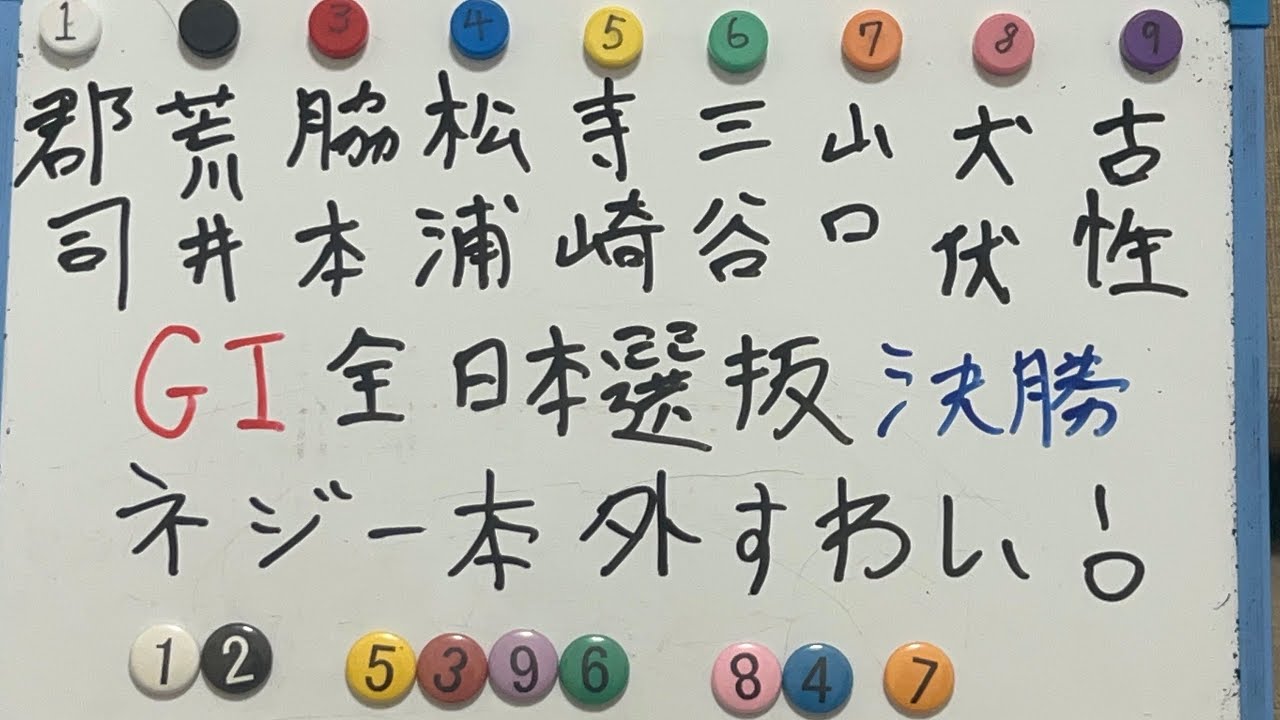 1 3 4 5 6 7 8 9
郡 荒 脇 松 寺 三 山 犬 古
司 井 本 浦 崎 谷 口 伏 性
GI 全日本選抜 決勝
ネジ一本外すわい!
1 2 5 3 9 6 8 4 7